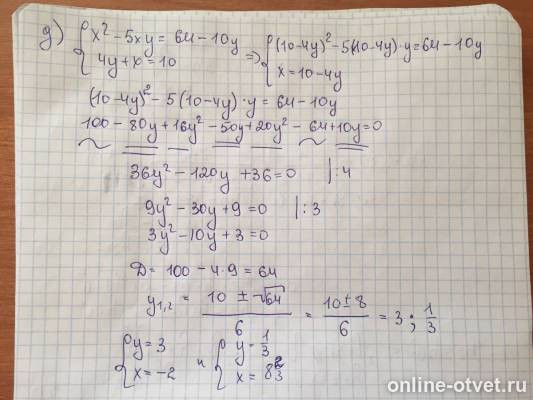 д) { x² - 5xy = 64 - 10y => { (10-4y)² - 5(10-4y)·y = 64 - 10y
4y + x = 10 x = 10 - 4y
(10-4y)² - 5(10-4y)·y = 64 - 10y
100 - 80y + 16y² - 50y + 20y² - 64 + 10y = 0
36y² - 120y + 36 = 0 |:4
9y² - 30y + 9 = 0 |:3
3y² - 10y + 3 = 0
Д = 100 - 4·9 = 64
y₁,₂ = (10 ± √64)/6 = (10 ± 8)/6 = 3 ; 1/3
{ y = 3 и { y = 1/3
x = -2 x = 8 2/3
online-otvet.ru